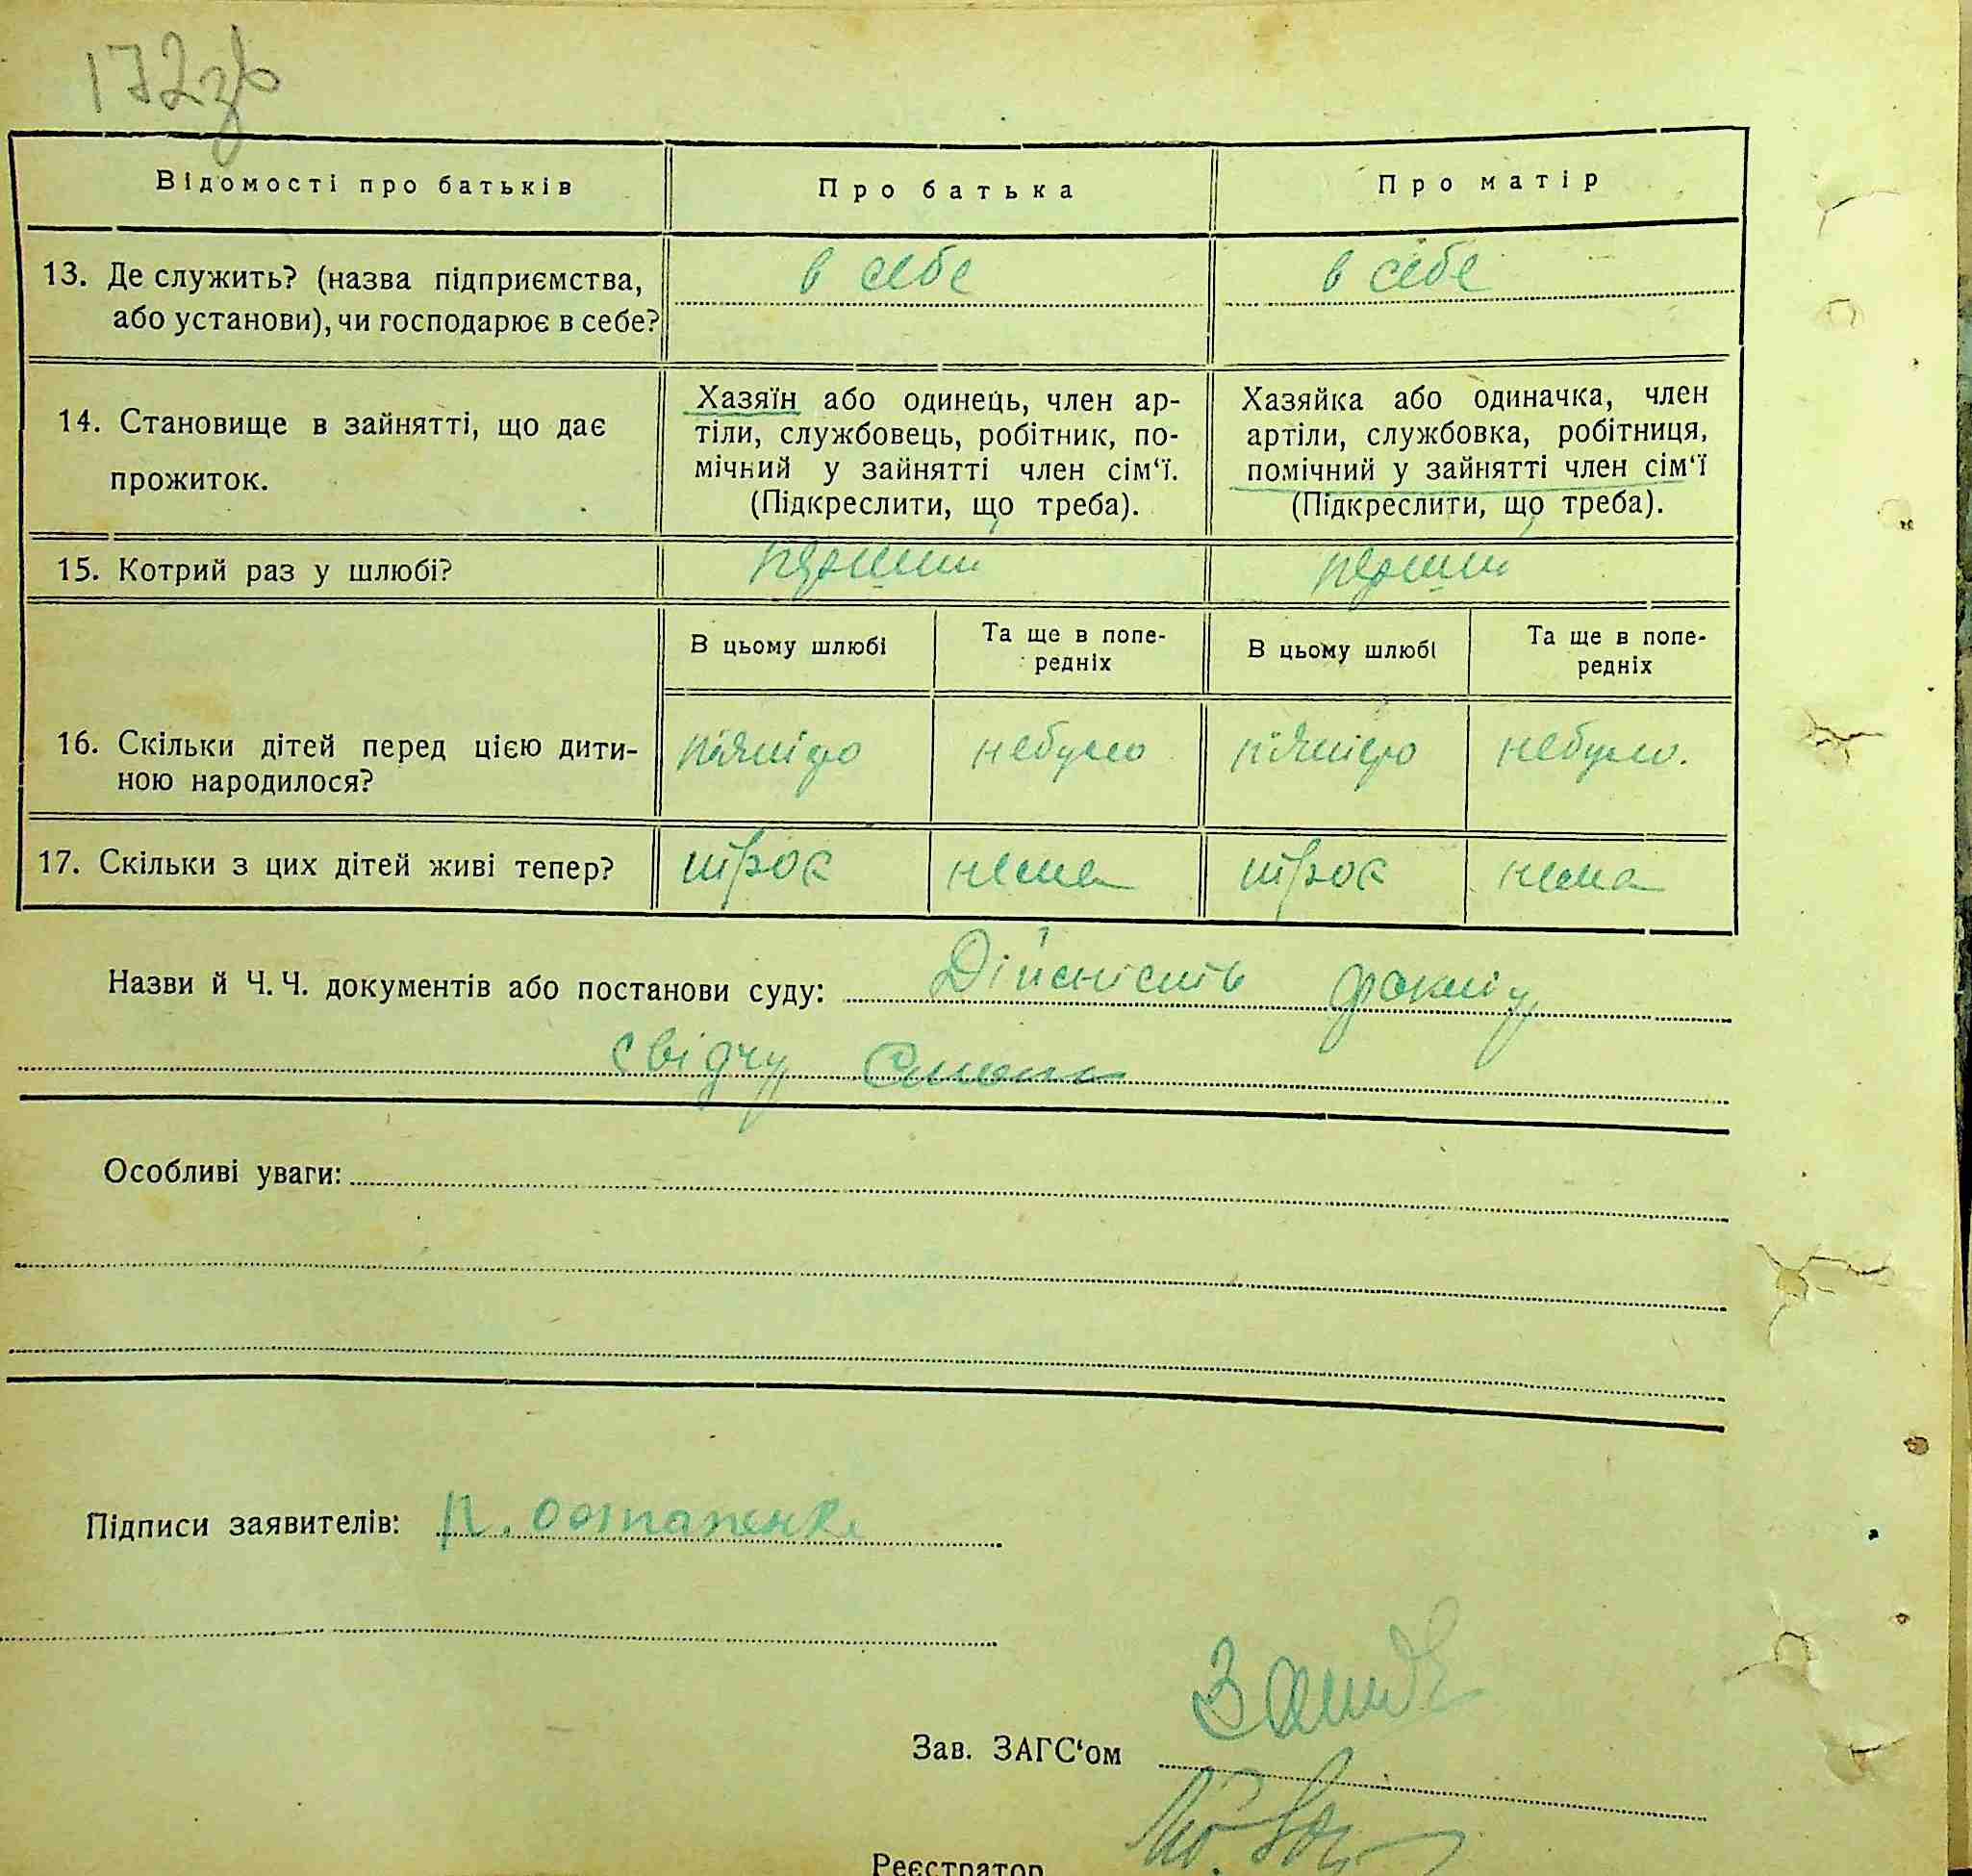 172зв
Відомості про батьків
Про батька
Про матір
13. Де служить? (назва підприємства,
або установи), чи господарює в себе?
в себе
в себе
14. Становище в зайнятті, що дає
прожиток.
Хазяїн або одинець, член ар-
тіли, службовець, робітник, по-
мічний у зайнятті член сім‘ї.
(Підкреслити, що треба).
Хазяйка або одиначка, член
артіли, службовка, робітниця,
помічний у зайнятті член сім‘ї
(Підкреслити, що треба).
15. Котрий раз у шлюбі?
перший
перший
В цьому шлюбі
Та ще в попе-
редніх
В цьому шлюбі
Та ще в попе-
редніх
16. Скільки дітей перед цією дити-
ною народилося?
пятеро
небуло
пятеро
небуло.
17. Скільки з цих дітей живі тепер?
троє
нема
троє
нема
Назви й Ч. Ч. документів або постанови суду: Дійсність факту
свідчу
Особливі уваги:
Підписи заявителів: П. Остапенко
Зав. ЗАГС‘ом
Реєстратор